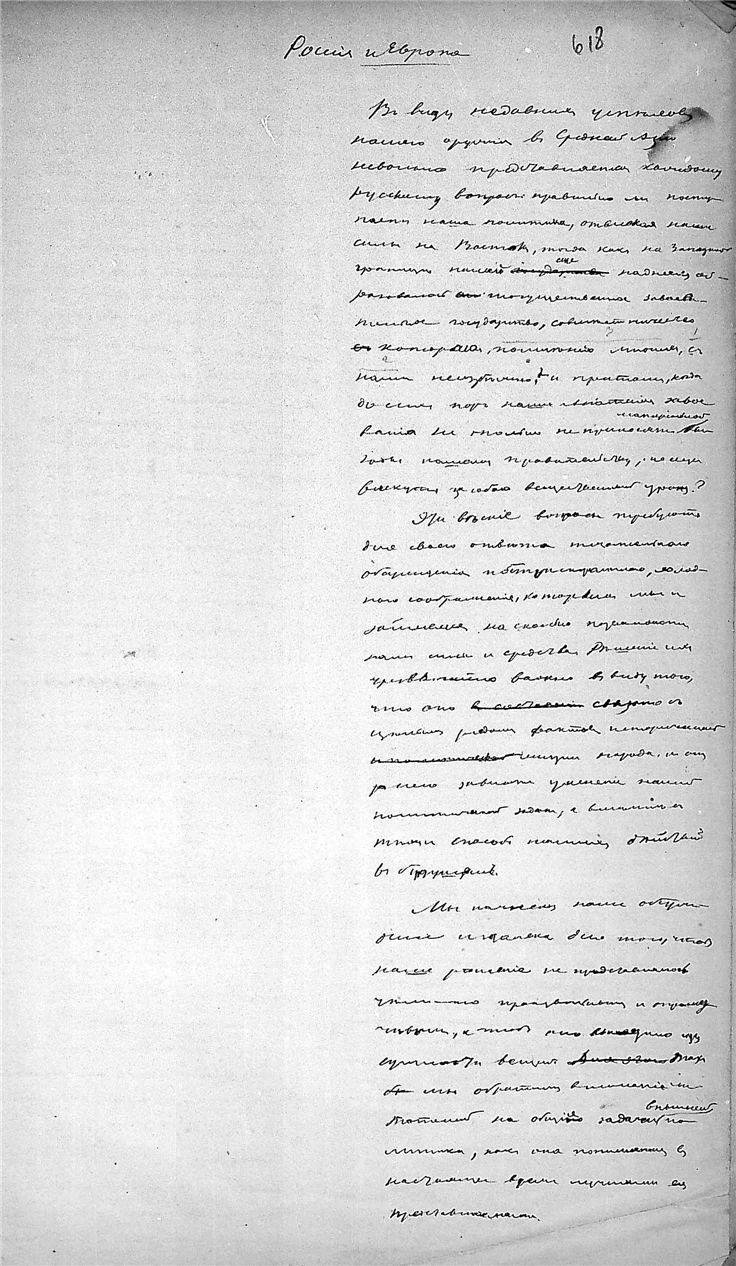 Россия и Европа
618
Въ виду недавнихъ успѣховъ
нашего оружія въ Средней Азіи
невольно представляется каждому
русскому вопросъ: правильно ли посту-
паетъ наша политика, отвлекая наши
силы на Востокъ, тогда какъ на Западной
границѣ нашей государства
могущественное завоева-
тельное государство, столкновеніе
съ которымъ, по мнѣнію многихъ,
и притомъ, когда
до сихъ поръ наши завое
ванія не только не приносятъ матеріальной вы
годы нашему правительству, но еще
влекутъ за собою вещественный уронъ?
Эти вопросы требуютъ
для своего отвѣта тщательнаго
обсужденія и безпристрастнаго, холод-
наго соображенія, которымъ мы и
займемся, на сколько позволяютъ
наши силы и средства. Рѣшеніе ихъ
чрезвычайно важно въ виду того,
что оно связано съ
цѣлымъ рядомъ фактовъ исторической
жизни народа, и отъ
него зависитъ уясненіе нашей
политической задачи, а вмѣстѣ съ
тѣмъ и способъ нашихъ дѣйствій
въ будущемъ.
Мы начнемъ наше обсуж-
деніе издалека для того, чтобъ
наше рѣшеніе не представлялось
и
а чтобъ оно выходило изъ
сущности вещей.
мы обратимъ вниманіе
на общія задачи внѣшней по
литики, какъ она понимается въ
настоящее время лучшими ея
представителями.